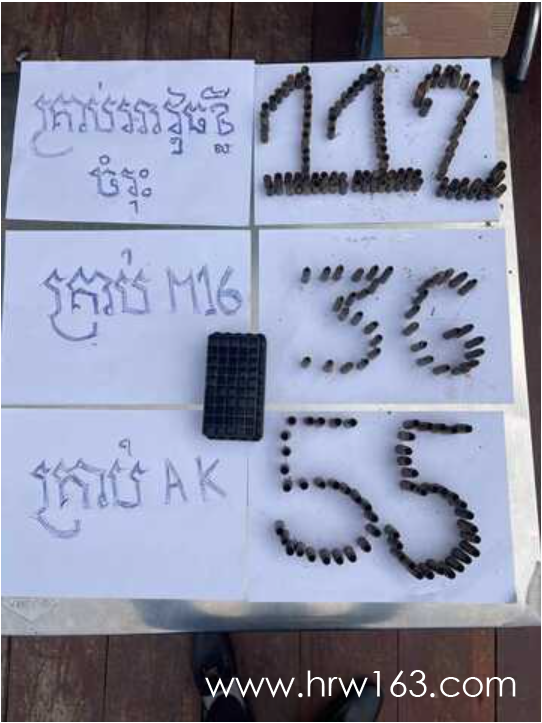 គ្រាប់អាវុធខ្លី
ចំរុះ
112
គ្រាប់ M16
36
គ្រាប់ AK
55
www.hrw163.com